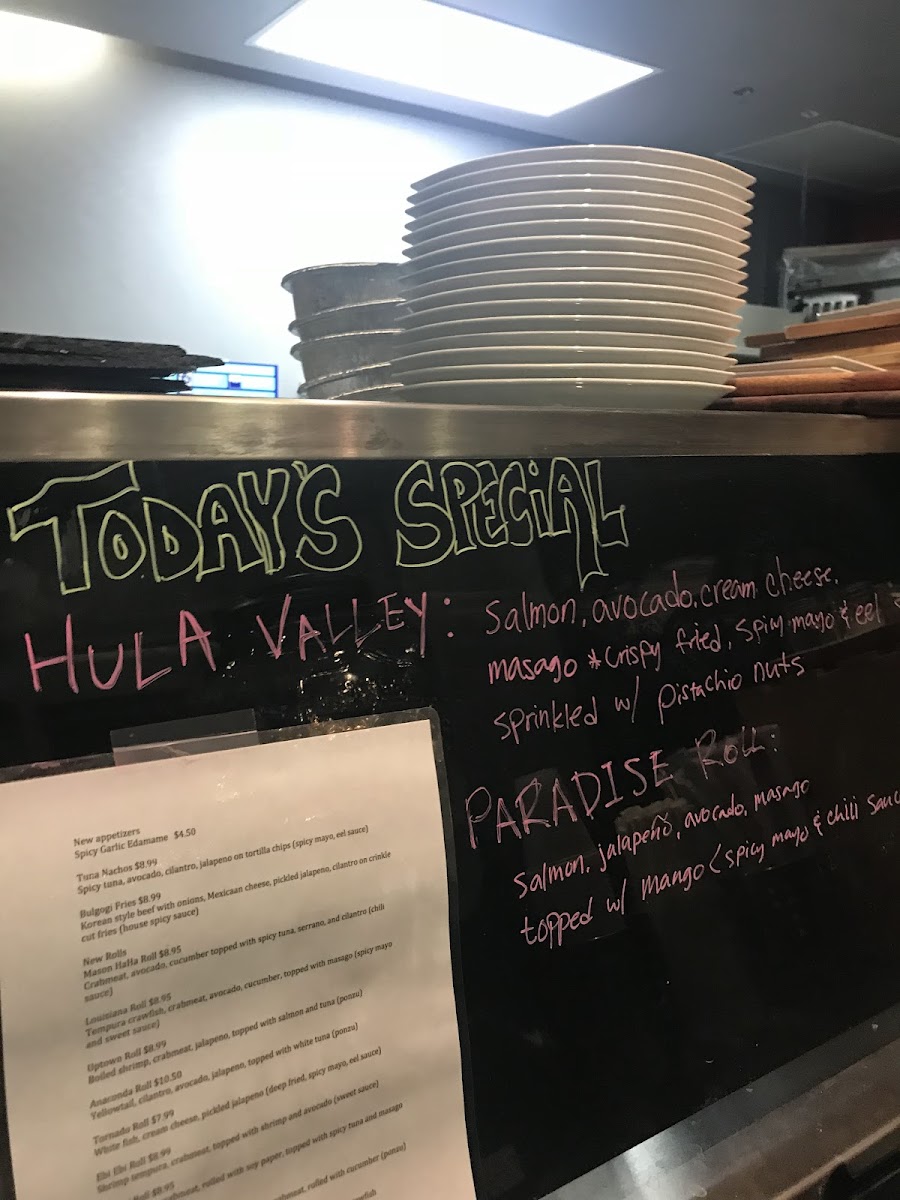 TODAY'S SPECIAL
HULA VALLEY:
Salmon, avocado, cream cheese,
masago *crispy fried, spicy mayo & eel
sprinkled w/ pistachio nuts
PARADISE ROLL:
Salmon, jalapeño, avocado, masago
topped w/ mango (spicy mayo & chili sauc
New appetizers
Spicy Garlic Edamame $4.50
Tuna Nachos $8.99
Spicy tuna, avocado, cilantro, jalapeno on tortilla chips (spicy mayo, eel sauce)
Bulgogi Fries $8.99
Korean style beef with onions, Mexicaan cheese, pickled jalapeno, cilantro on crinkle
cut fries (house spicy sauce)
New Rolls
Mason HaHa Roll $8.95
Crabmeat, avocado, cucumber topped with spicy tuna, serrano, and cilantro (chili
sauce)
Louisiana Roll $8.95
Tempura crawfish, crabmeat, avocado, cucumber, topped with masago (spicy mayo
and sweet sauce)
Uptown Roll $8.99
Boiled shrimp, crabmeat, jalapeno, topped with salmon and tuna (ponzu)
Anaconda Roll $10.50
Yellowtail, cilantro, avocado, jalapeno, topped with white tuna (ponzu)
Tornado Roll $7.99
White fish, cream cheese, pickled jalapeno (deep fried, spicy mayo, eel sauce)
Ebi Ebi Roll $8.99
Shrimp tempura, crabmeat, topped with shrimp and avocado (sweet sauce)
Roll $8.95
crabmeat, rolled with soy paper, topped with spicy tuna and masago
crabmeat, rolled with cucumber (ponzu)
crawfish